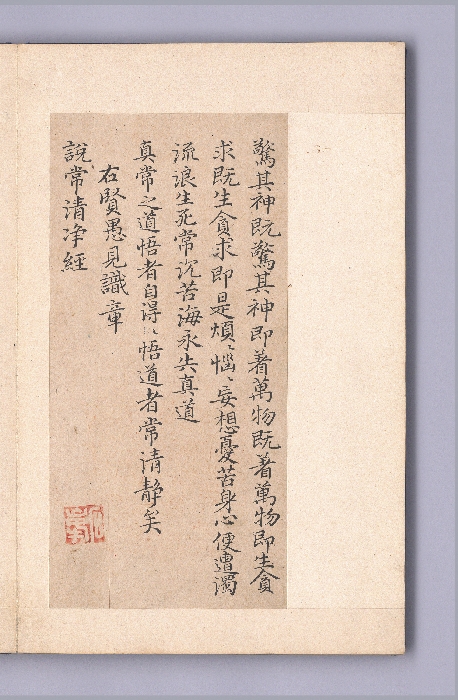 驚其神既驚其神即著萬物既著萬物即生貪
求既生貪求即是煩〻惱〻妄想憂苦身心便遭濁
流浪生死常沉苦海永失真道
真常之道悟者自得〻悟道者常清静矣
右賢愚見識章
說常清净經